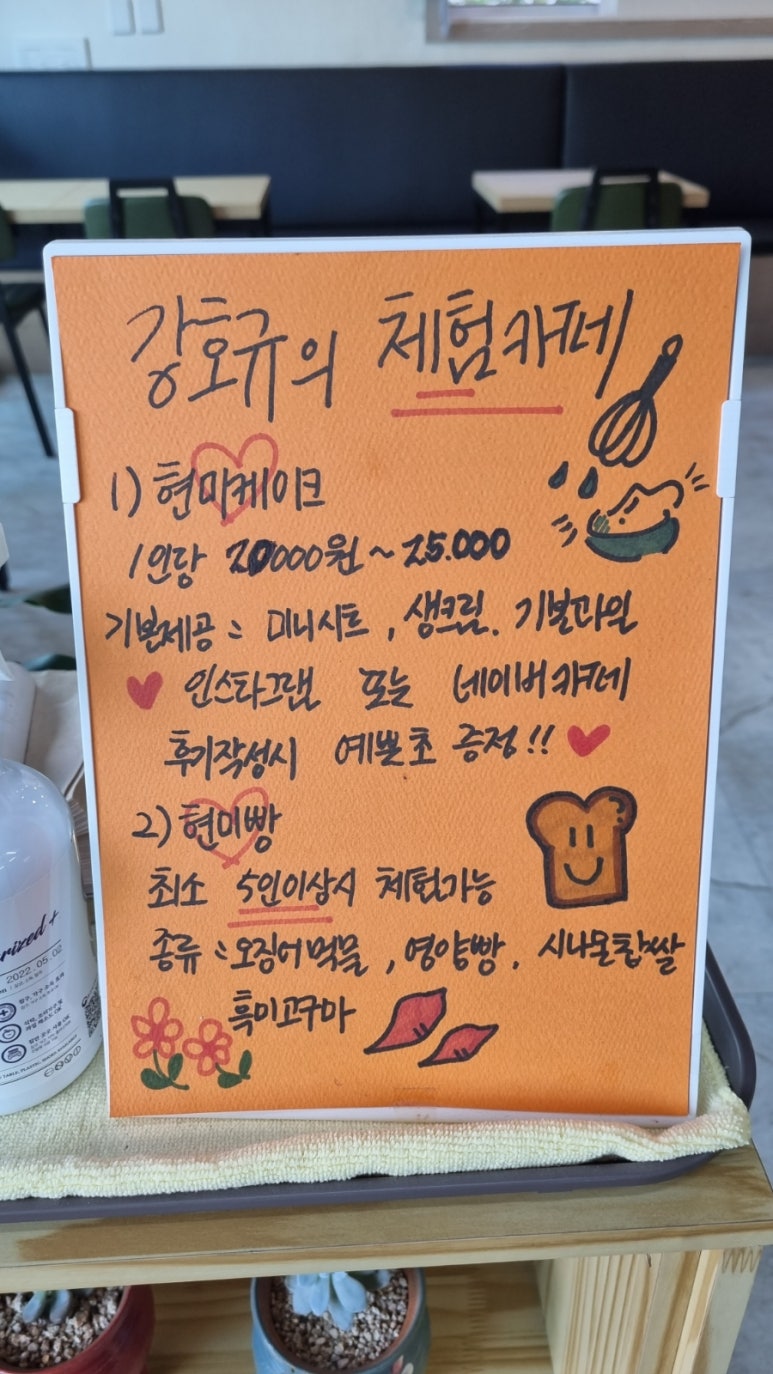 강호규의 체험카페
1) 현미케이크
1인당 20000원 ~ 25.000
기본제공 : 미니시트, 생크림. 기본과일
인스타그램 또는 네이버카페
후기작성시 예쁜초 증정!!
2) 현미빵
최소 5인이상시 체험가능
종류 : 오징어먹물, 영양빵. 시나몬찹쌀
흑미고구마
rized +
2022.05.02